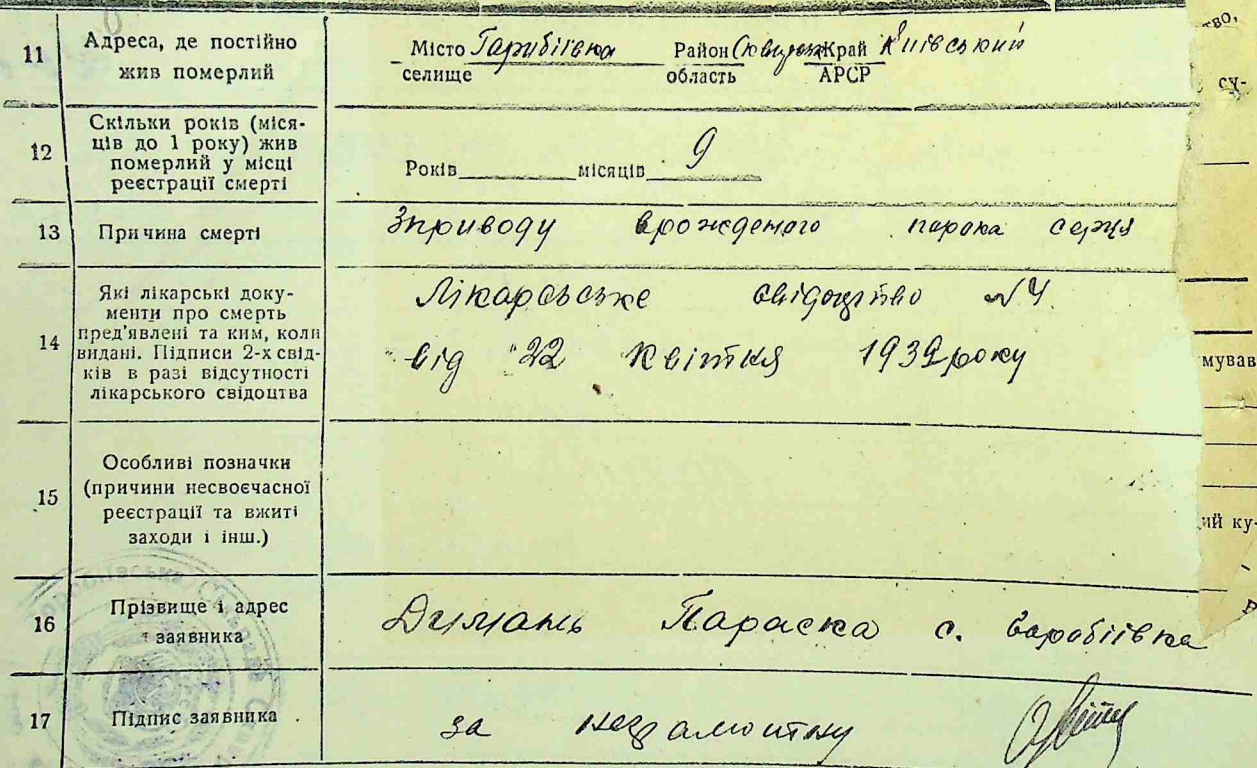 11 Адреса, де постійно жив померлий
Місто Район Край Київський
селище область АРСР
12 Скільки років (місяців до 1 року) жив померлий у місці реєстрації смерті
Років місяців 9
13 Причина смерті
Зприводу врожденого парока серця
14 Які лікарські доку-
менти про смерть
пред'явлені та ким, коли
видані. Підписи 2-х свід-
ків в разі відсутності
лікарського свідоцтва
Лікарсьське свідоцтво №4
від "22 Квітня 1939 року
15 Особливі позначки
(причини несвоєчасної
реєстрації та вжиті
заходи і інш.)
16 Прізвище і адрес
заявника
Димань Параска с. Воробіївка
17 Підпис заявника
за
тво,
су-
мував
ий ку-